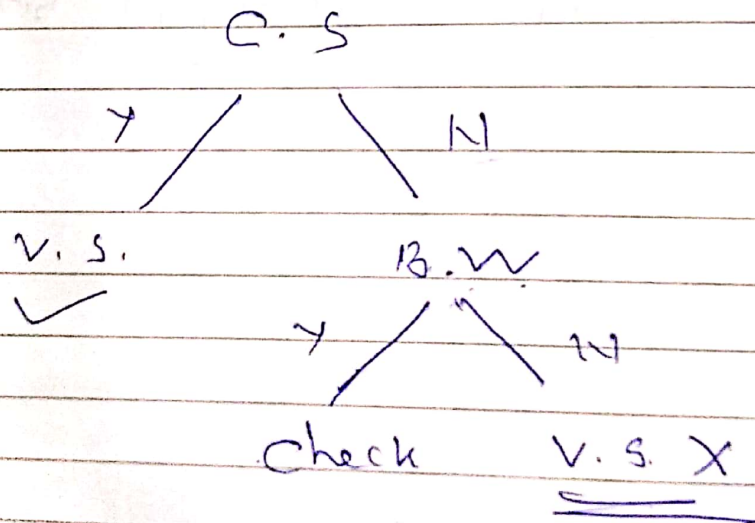 C. S
Y N
V. S. B.W
✓
Y N
Check V. S. X